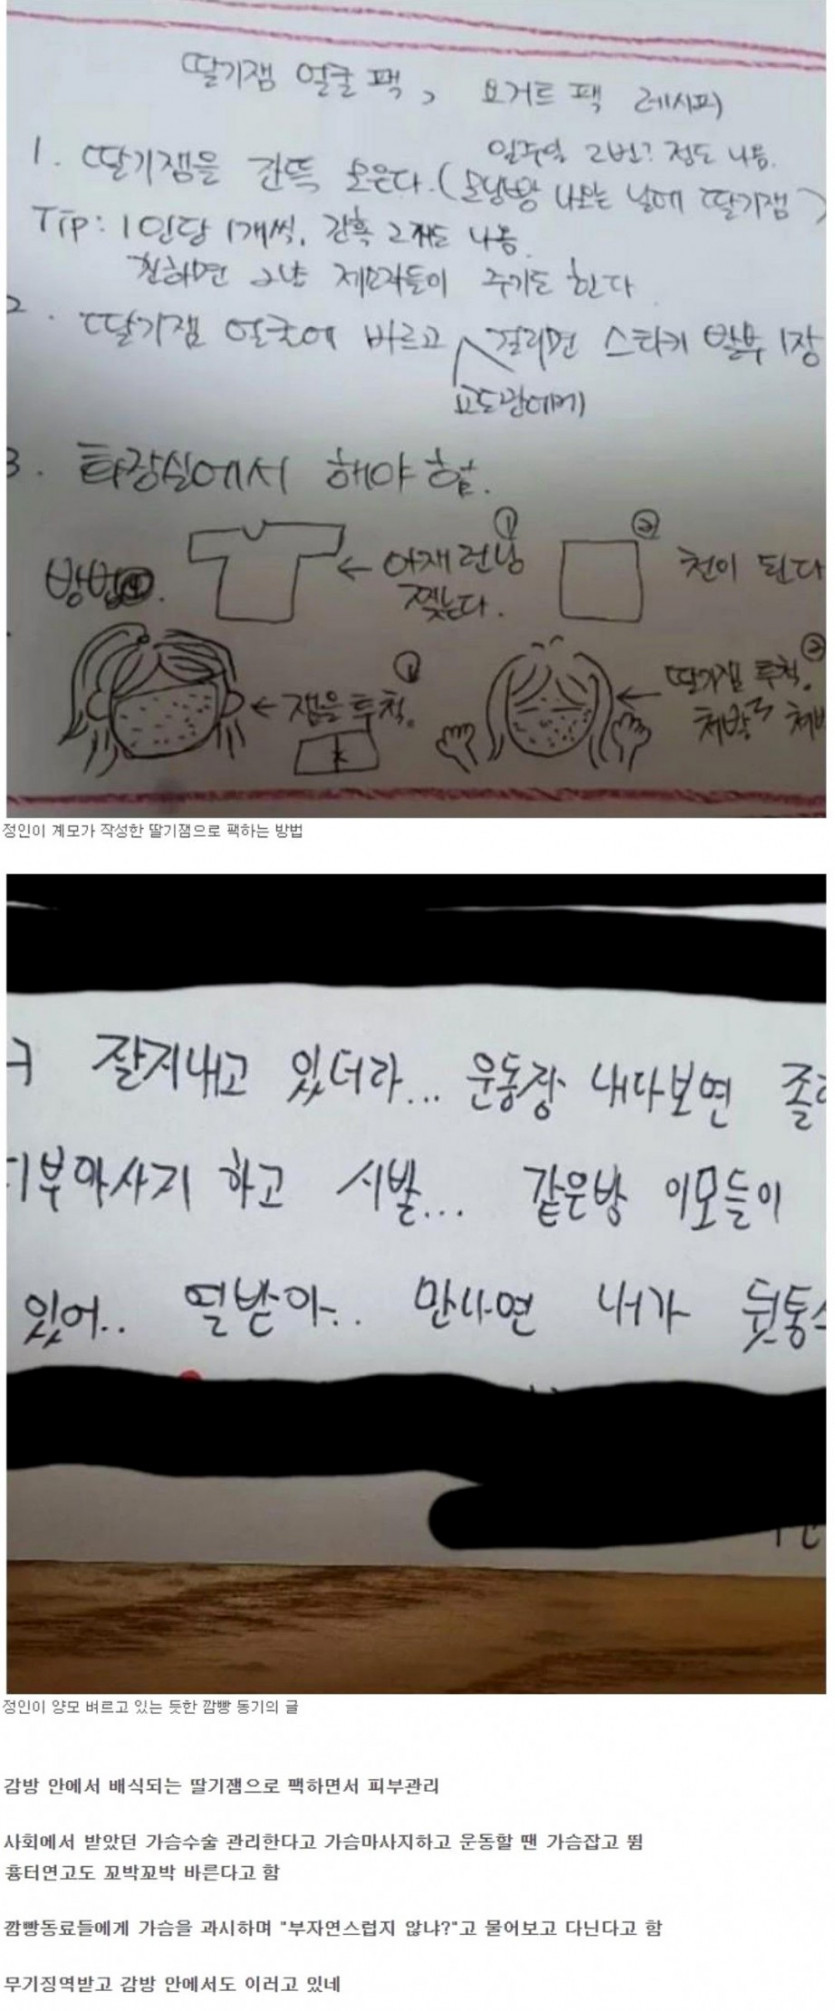 딸기잼 얼굴 팩, 요거트 팩 레시피
일주일 2번? 정도 나옴.
1. 딸기잼을 잔뜩 모은다. (모닝빵 나오는 날에 딸기잼)
Tip: 1인당 1개씩, 간혹 2개도 나옴.
친하면 그냥 제소자들이 주기도 한다
2. 딸기잼 얼굴에 바르고 걸리면 스티커 발부 1장
교도관에게
3. 화장실에서 해야 함.
방법
① ←아재 런닝
찢는다.
② 천이 된다
① ←잼을 투척.
② ←딸기잼 투척.
정인이 계모가 작성한 딸기잼으로 팩하는 방법
잘지내고 있더라... 운동장 내다보면
하고 시발... 같은방 이모들이
있어.. 열받아.. 만나면 내가
정인이 양모 벼르고 있는 듯한 깜빵 동기의 글
감방 안에서 배식되는 딸기잼으로 팩하면서 피부관리
사회에서 받았던 가슴수술 관리한다고 가슴마사지하고 운동할 땐 가슴잡고 뜀
흉터연고도 꼬박꼬박 바른다고 함
깜빵동료들에게 가슴을 과시하며 "부자연스럽지 않냐?"고 물어보고 다닌다고 함
무기징역받고 감방 안에서도 이러고 있네